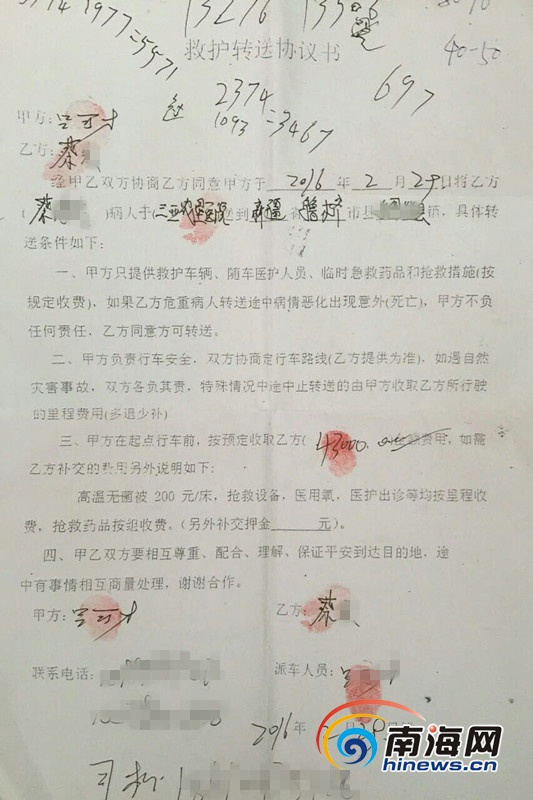 3774 1977=5571
13276
40-50
救护转送协议书
2374
1093 =3467
697
甲方:
乙方: 蔡
经甲乙双方协商乙方同意甲方于 2016 年 2 月 29日将乙方
(蔡 )病人于(三亚 医院 送到 新疆 市县 镇, 具体转
送条件如下:
一、甲方只提供救护车辆、随车医护人员、临时急救药品和抢救措施(按
规定收费), 如果乙方危重病人转送途中病情恶化出现意外(死亡), 甲方不负
任何责任, 乙方同意方可转送。
二、甲方负责行车安全, 双方协商定行车路线(乙方提供为准), 如遇自然
灾害事故, 双方各负其责, 特殊情况中途中止转送的由甲方收取乙方所行驶
的里程费用(多退少补)
三、甲方在起点行车前, 按预定收取乙方( 43000. 费用, 如需
乙方补交的费用另外说明如下:
高温无菌被 200 元/床, 抢救设备, 医用氧, 医护出诊等均按里程收
费, 抢救药品按组收费。(另外补交押金 元)。
四、甲乙双方要相互尊重、配合、理解、保证平安到达目的地, 途
中有事情相互商量处理, 谢谢合作。
甲方: 乙方: 蔡
联系电话: 派车人员:
2016 年 月
司机
南海网
hinews.cn